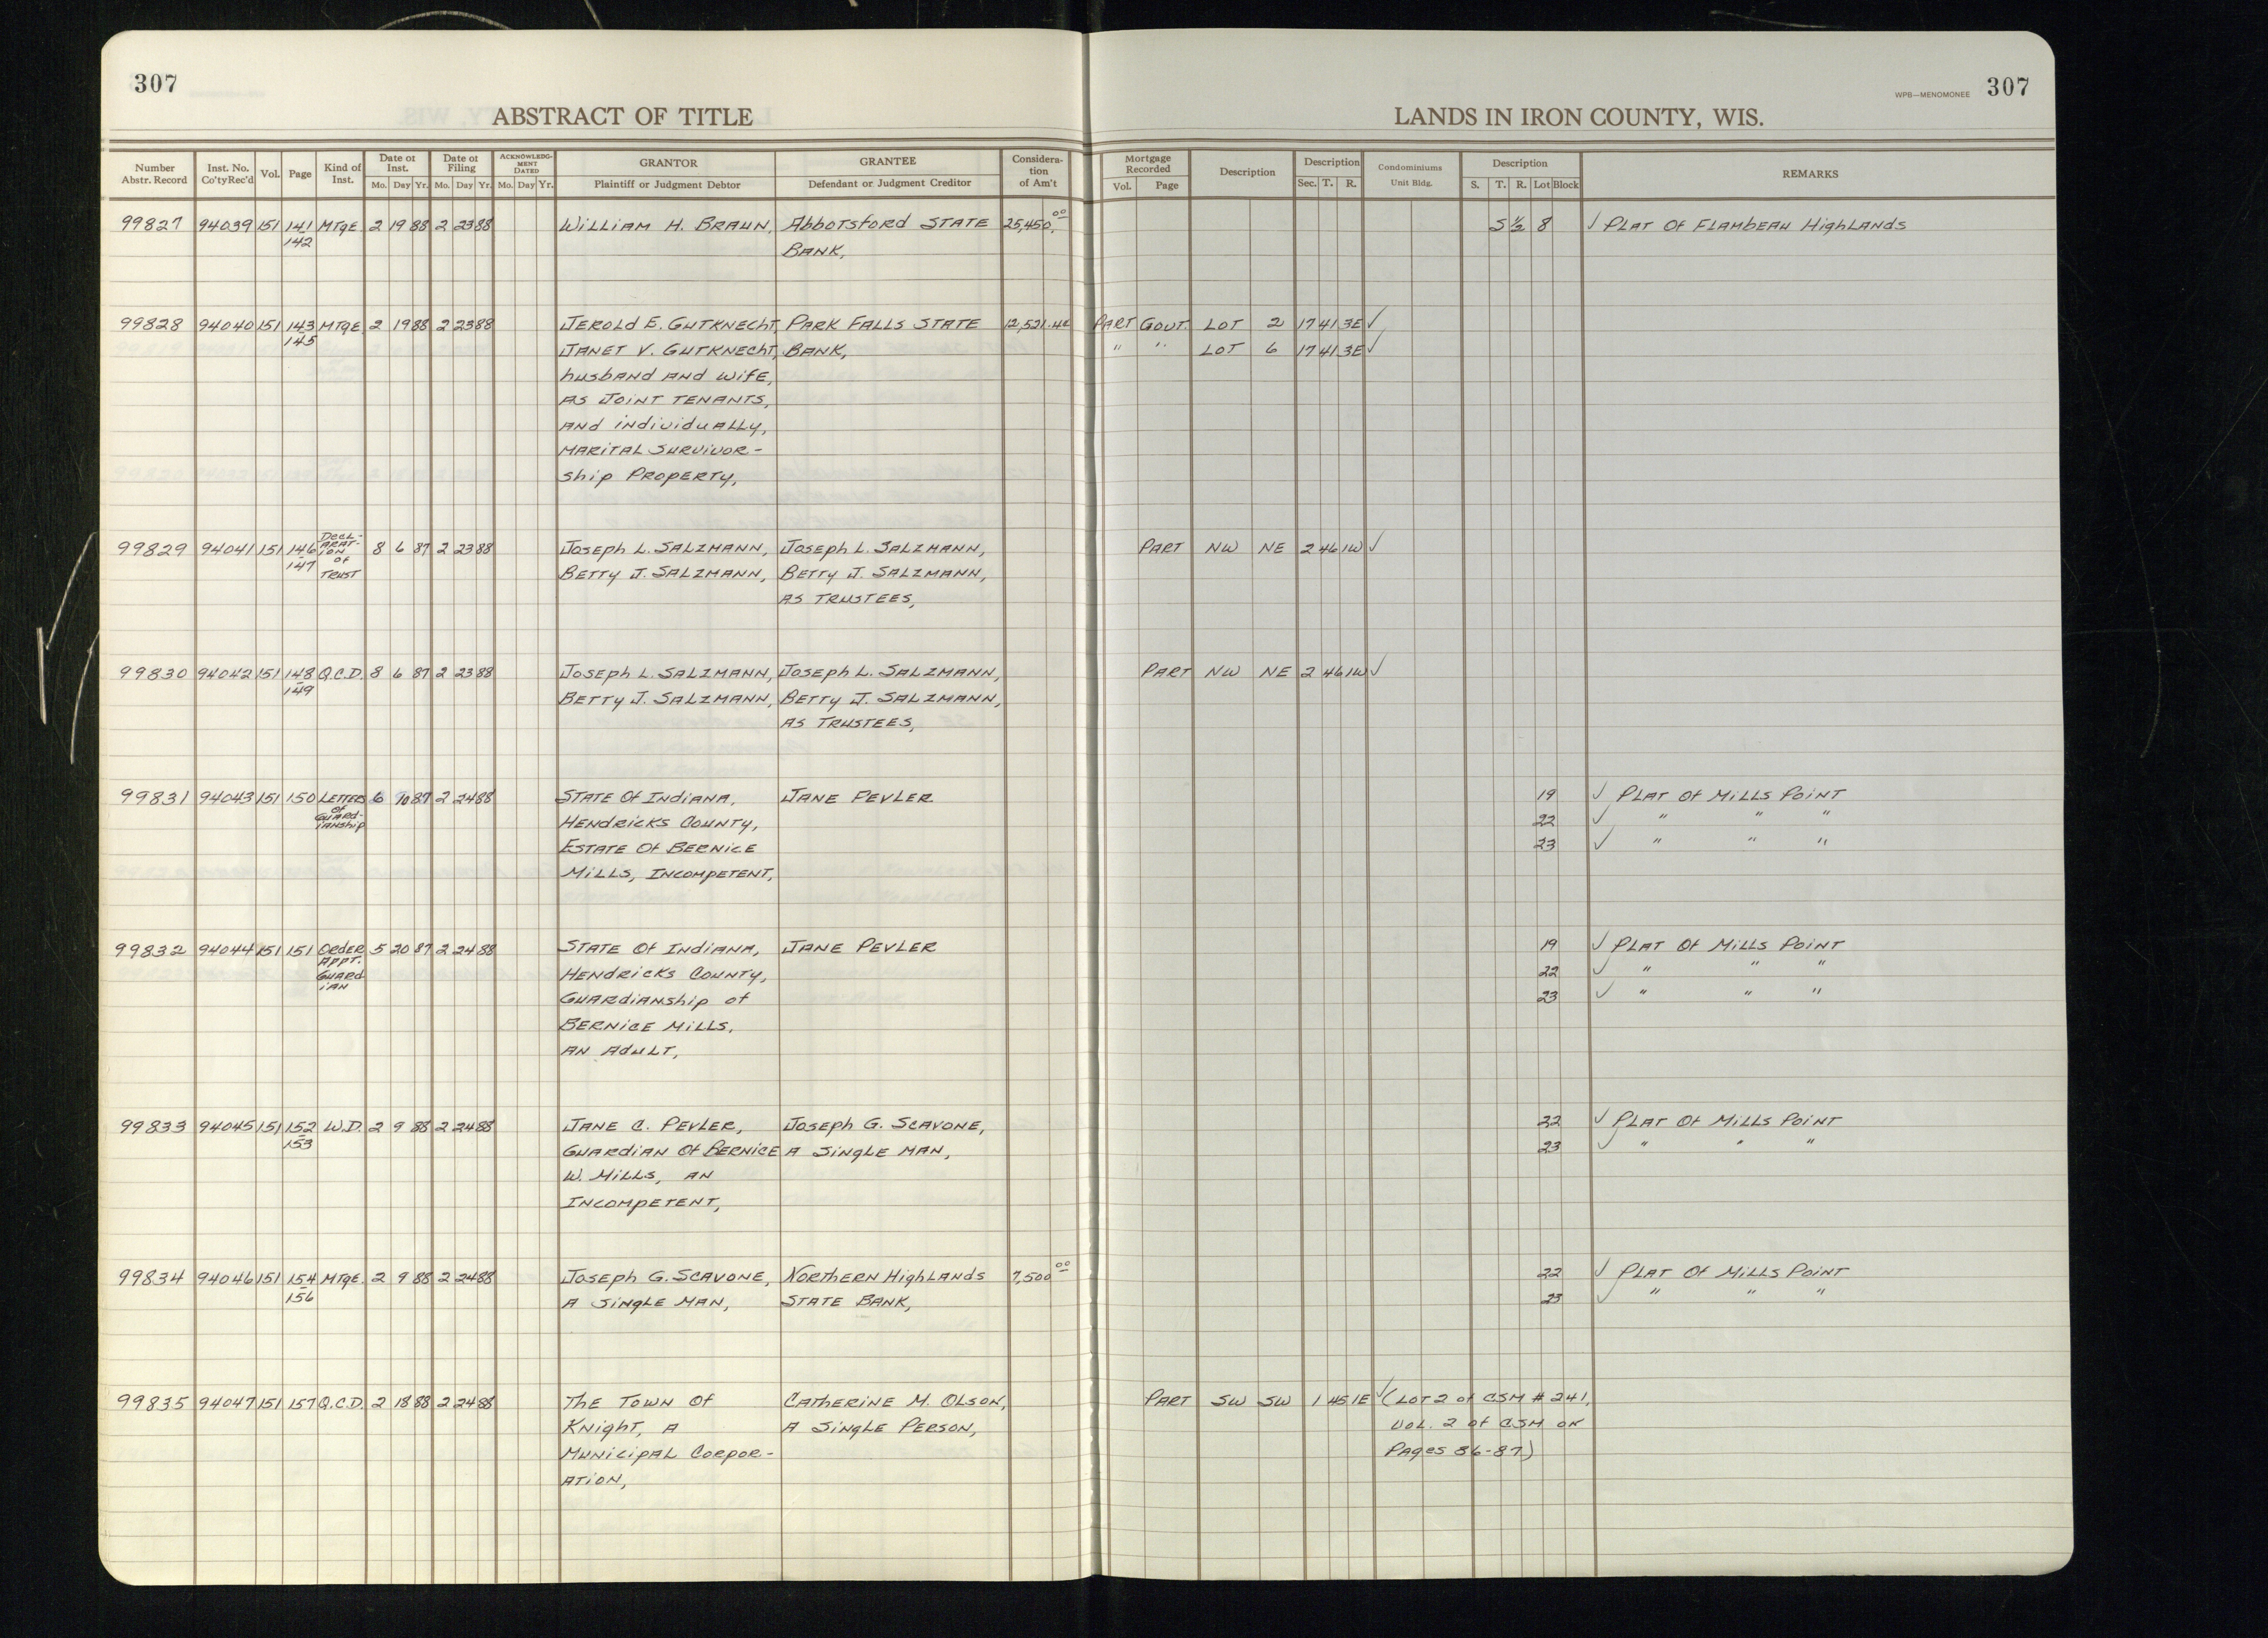 307
307
WPB—MENOMONEE
ABSTRACT OF TITLE
LANDS IN IRON COUNTY, WIS.
Number Abstr. Record | Inst. No. Co'ty Rec'd | Vol. | Page | Kind of Inst. | Date of Inst. Mo. Day Yr. | Date of Filing Mo. Day Yr. | ACKNOWLEDGMENT DATED Mo. Day Yr. | GRANTOR Plaintiff or Judgment Debtor | GRANTEE Defendant or Judgment Creditor | Consideration of Am't | Mortgage Recorded Vol. Page | Description | Description Sec. T. R. | Condominiums Unit Bldg. | Description S. T. R. Lot Block | REMARKS
99827 94039 151 141 MTgE 2 19 88 2 23 88 WILLIAM H. BRAUN, Abbotsford STATE 25,450.00 S 1/2 8 ✓ PLAT Of FLAMBEAU HighLANDS
142 BANK,
99828 94040 151 143 MTgE 2 19 88 2 23 88 JEROLD E. GUTKNECHT, PARK FALLS STATE 12,521.42 PART GOVT. LOT 2 17 41 3E ✓
145 JANET V. GUTKNECHT, BANK, " " LOT 6 17 41 3E ✓
husbAND AND wifE,
AS JOINT TENANTS,
AND individuALLy,
MARITAL SURVIVOR-
ship PROPERTY,
99829 94041 151 146 DECL- 8 6 87 2 23 88 Joseph L. SALZMANN, Joseph L. SALZMANN, PART NW NE 2 46 1W ✓
147 ARAT- BETTy J. SALZMANN, BETTy J. SALZMANN,
ION AS TRUSTEES,
Of
TRUST
99830 94042 151 148 Q.C.D. 8 6 87 2 23 88 Joseph L. SALZMANN, Joseph L. SALZMANN, PART NW NE 2 46 1W ✓
149 BETTY J. SALZMANN, BETTy J. SALZMANN,
AS TRUSTEES,
99831 94043 151 150 LETTERS 6 10 87 2 24 88 STATE Of INdiANA, JANE PEVLER 19 ✓ PLAT Of MiLLS POINT
Of HENdRicKS COUNTy, 22 ✓ " " "
GUARd- ESTATE Of BERNICE 23 ✓ " " "
iANship MiLLS, INCOMPETENT,
99832 94044 151 151 ORdER 5 20 87 2 24 88 STATE Of INdiANA, JANE PEVLER 19 ✓ PLAT Of MiLLS POINT
APPT. HENdRicKS COUNTy, 22 ✓ " " "
GUARd GUARdiANship of 23 ✓ " " "
iAN BERNICE MiLLS,
AN AdULT,
99833 94045 151 152 W.D. 2 9 88 2 24 88 JANE C. PEVLER, Joseph G. SCAVONE, 22 ✓ PLAT Of MiLLS POINT
153 GUARdiAN Of BERNICE A SINgLE MAN, 23 ✓ " " "
W. MiLLS, AN
INCOMPETENT,
99834 94046 151 154 MTgE. 2 9 88 2 24 88 Joseph G. SCAVONE, NORTHERN HighLANDS 7,500.00 22 ✓ PLAT Of MiLLS POINT
156 A SINgLE MAN, STATE BANK, 23 ✓ " " "
99835 94047 151 157 Q.C.D. 2 18 88 2 24 88 THE TOWN Of CATHERINE M. OLSON, PART SW SW 1 45 1E ✓ (LOT 2 of CSM # 241,
KNighT, A A SINgLE PERSON, VOL. 2 of CSM ON
MUNICIPAL CORPOR- PAgES 86-87)
ATION,